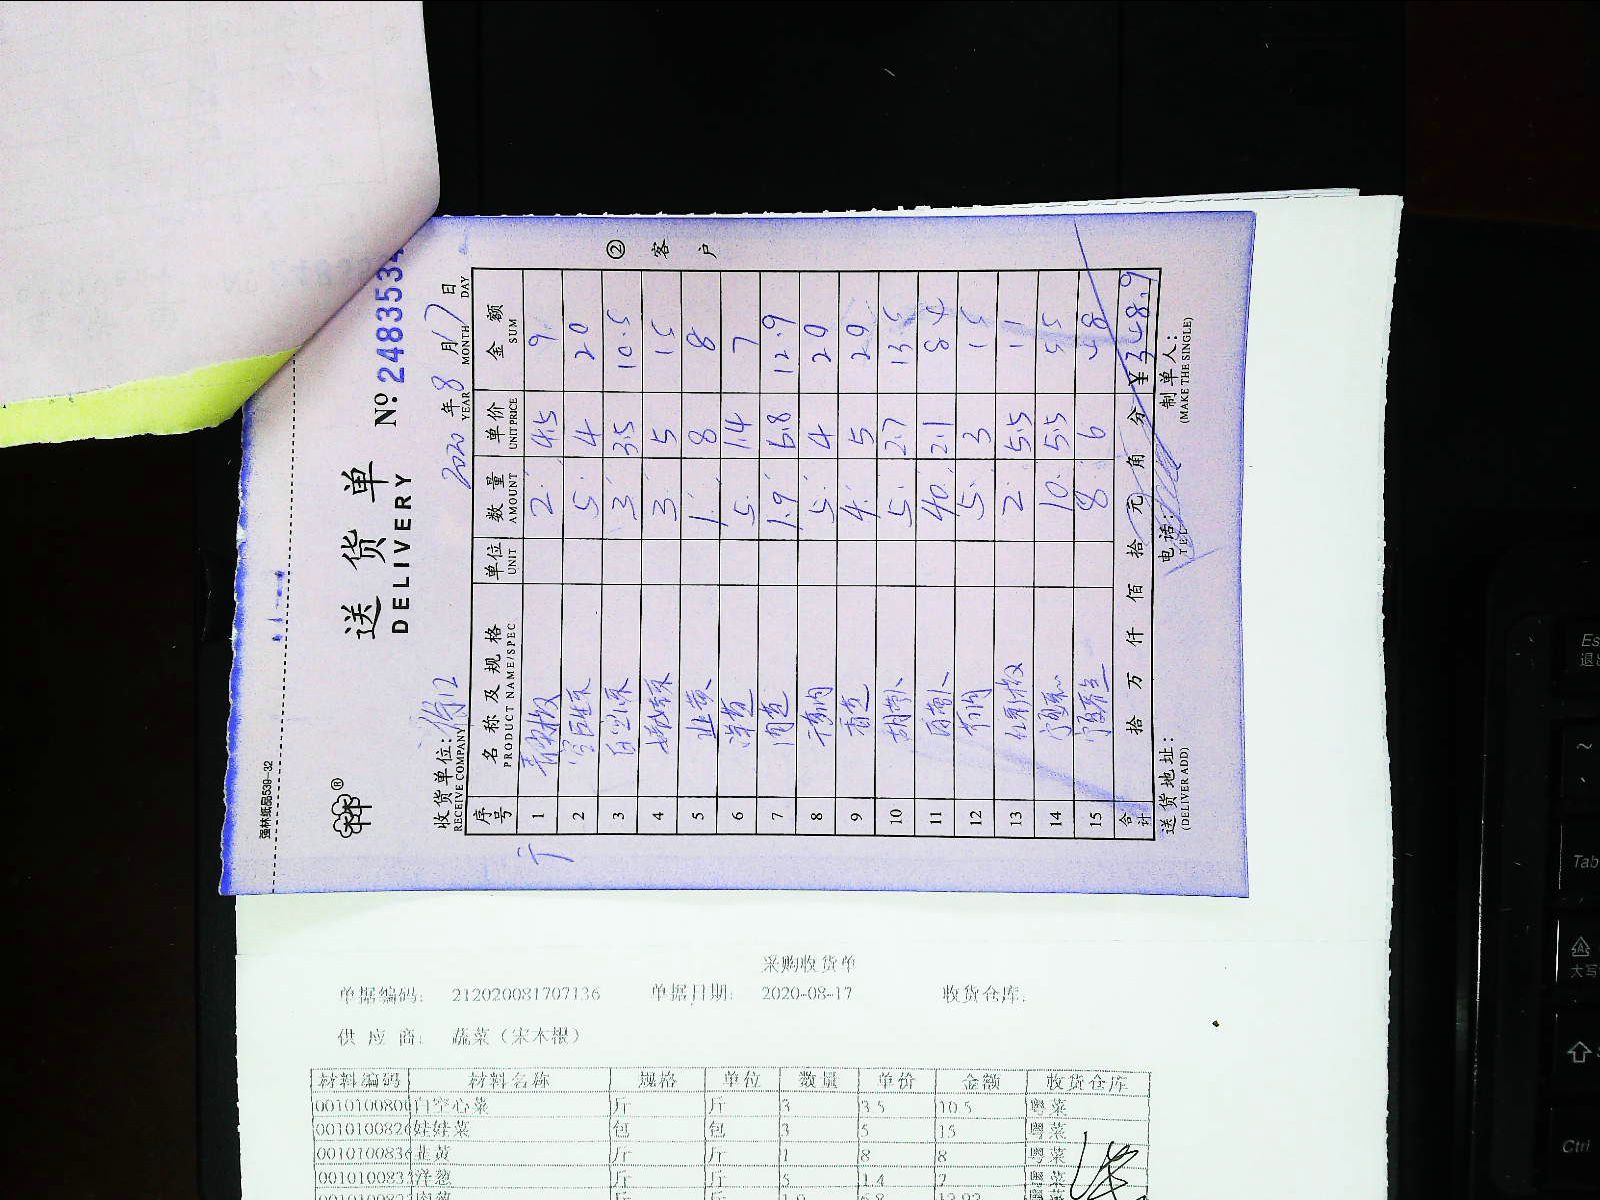 强林纸品539-32
送货单
DELIVERY
№ 2483534
收货单位:
RECEIVE COMPANY
2020 年 8 月 17 日
YEAR MONTH DAY
② 客户
序号 名称及规格 单位 数量 单价 金额
PRODUCT NAME/SPEC UNIT AMOUNT UNIT PRICE SUM
1 2 4.5 9
2 5 4 20
3 3 3.5 10.5
4 娃娃菜 3 5 15
5 韭黄 1 8 8
6 洋葱 5 1.4 7
7 肉葱 1.9 6.8 12.9
8 5 4 20
9 香葱 4 5 20
10 胡萝卜 5 2.7 13.5
11 白萝卜 40 2.1 84
12 5 3 15
13 2 5.5 11
14 10 5.5 55
15 8 6 48
合计 拾 万 仟 佰 拾 元 角 分 ¥348.9
送货地址:
(DELIVER ADD)
电话:
TEL
制单人:
(MAKE THE SINGLE)
采购收货单
单据编码: 212020081707136 单据日期: 2020-08-17 收货仓库:
供应商: 蔬菜（宋木根）
材料编码 材料名称 规格 单位 数量 单价 金额 收货仓库
0010100800 白空心菜 斤 斤 3 3.5 10.5 粤菜
001010082 娃娃菜 包 包 3 5 15 粤菜
001010083 韭黄 斤 斤 1 8 8 粤菜
001010083 洋葱 斤 斤 5 1.4 7 粤菜
Tab
Ctrl